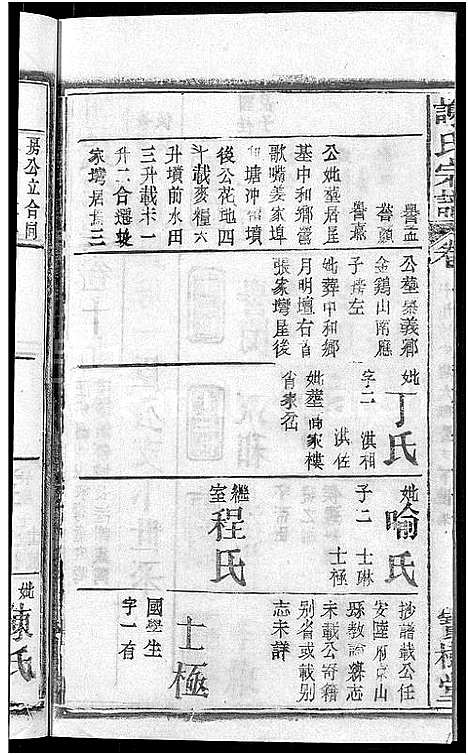 謝氏宗譜
卷
寶樹堂
譽孟
譽顯
譽嘉
公妣塟居屋
基中和鄉營
歌嘴姜家埠
和塘沖祖墳
後公花地四
斗載麥糧六
升墳前水田
三升載未一
升二合遷裝
家塆居長三
公塟崇義鄉
金鷄山南應
子塝左
妣葬中和鄉
月明壇右首
張家塆屋後
妣丁氏
字二 淇相
淇佐
妣塟商家樓
肖家岔
妣喻氏
子二 士琳
士極
繼室程氏
抄譜載公任
安陸府京山
縣教諭縣志
未載公奇籍
別省或載
志未詳
士極
國學生
字一有
房公立合同
妣陳氏